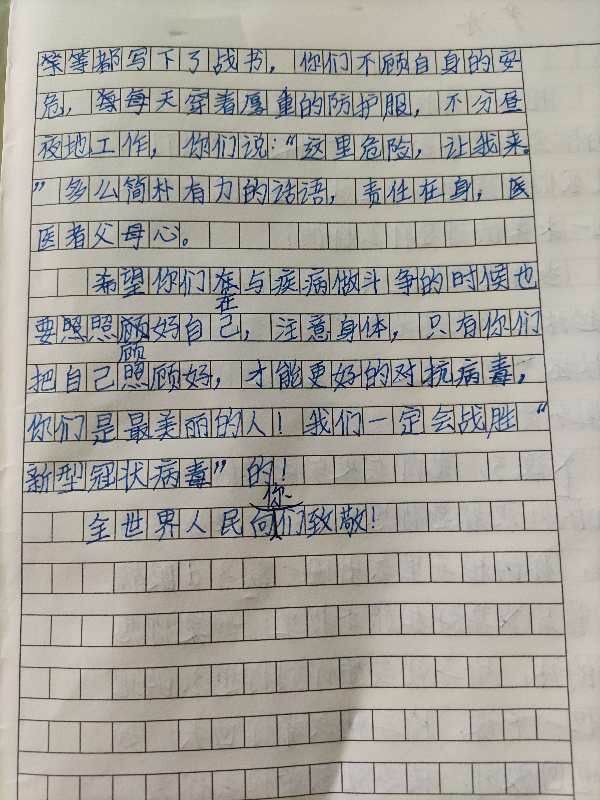 等都写下了战书，你们不顾自身的安
危，每每天穿着厚重的防护服，不分昼
夜地工作，你们说：“这里危险，让我来。
”多么简朴有力的话语，责任在身，医
医者父母心。
希望你们在与疾病做斗争的时候也
要照照顾好自己，注意身体，只有你们
把自己照顾好，才能更好的对抗病毒，
你们是最美丽的人！我们一定会战胜“
新型冠状病毒”的！
全世界人民向你们致敬！